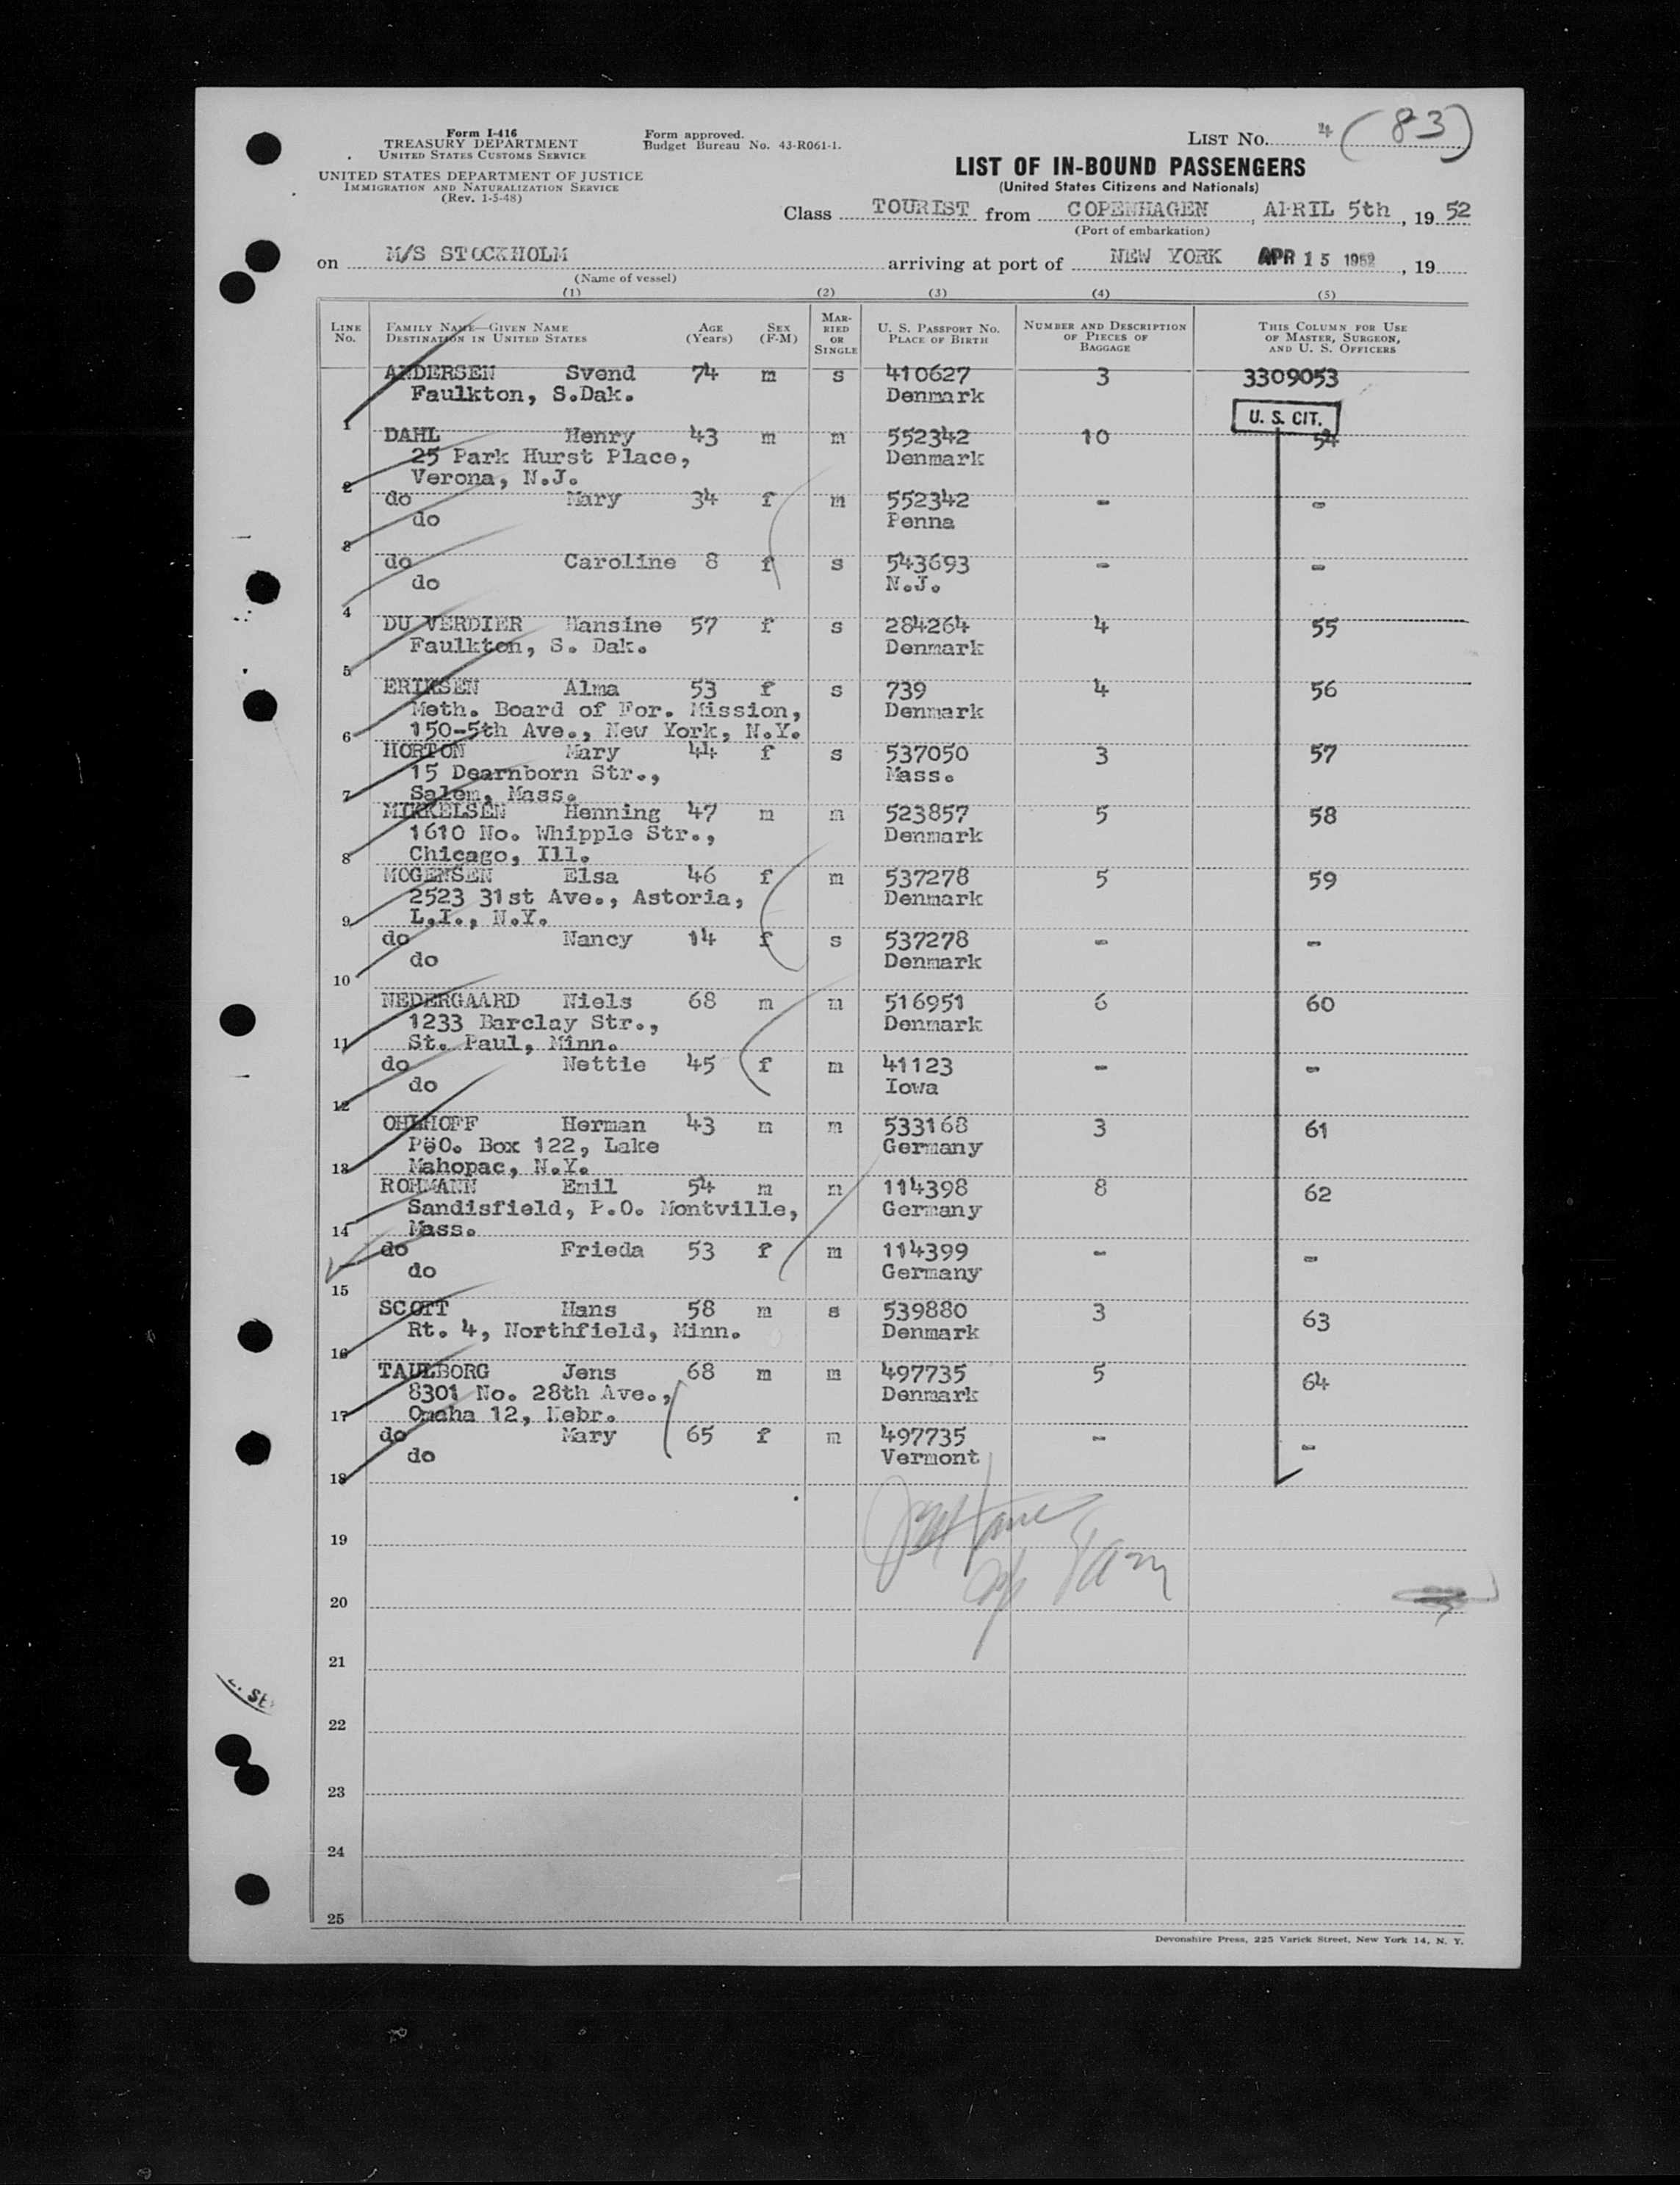 Form I-416
TREASURY DEPARTMENT
UNITED STATES CUSTOMS SERVICE
UNITED STATES DEPARTMENT OF JUSTICE
IMMIGRATION AND NATURALIZATION SERVICE
(Rev. 1-5-48)
Form approved.
Budget Bureau No. 43-R061-1.
LIST No. 4 (83)
LIST OF IN-BOUND PASSENGERS
(United States Citizens and Nationals)
Class TOURIST from COPENHAGEN, APRIL 5th, 1952
(Port of embarkation)
on M/S STOCKHOLM arriving at port of NEW YORK APR 15 1952, 19
(Name of vessel)
(1) (2) (3) (4) (5)
LINE No. FAMILY NAME—GIVEN NAME DESTINATION IN UNITED STATES AGE (Years) SEX (F-M) MARRIED OR SINGLE U. S. PASSPORT NO. PLACE OF BIRTH NUMBER AND DESCRIPTION OF PIECES OF BAGGAGE THIS COLUMN FOR USE OF MASTER, SURGEON, AND U. S. OFFICERS
ANDERSEN Svend 74 m s 410627 3 3309053
Faulkton, S.Dak. Denmark
U. S. CIT.
1
DAHL Henry 43 m m 552342 10 54
25 Park Hurst Place, Denmark
Verona, N.J.
2
do Mary 34 f m 552342 - -
do Penna
3
do Caroline 8 f s 543693 - -
do N.J.
4
DU VERDIER Hansine 57 f s 284264 4 55
Faulkton, S. Dak. Denmark
5
ERIKSEN Alma 53 f s 739 4 56
Meth. Board of For. Mission, Denmark
6 150-5th Ave., New York, N.Y.
HORTON Mary 44 f s 537050 3 57
15 Dearnborn Str., Mass.
7 Salem, Mass.
MIKKELSEN Henning 47 m m 523857 5 58
1610 No. Whipple Str., Denmark
8 Chicago, Ill.
MOGENSEN Elsa 46 f m 537278 5 59
2523 31st Ave., Astoria, Denmark
9 L.I., N.Y.
do Nancy 14 f s 537278 - -
do Denmark
10
NEDERGAARD Niels 68 m m 516951 6 60
1233 Barclay Str., Denmark
11 St. Paul, Minn.
do Nettie 45 f m 41123 - -
do Iowa
12
OHLHOFF Herman 43 m m 533168 3 61
PöO. Box 122, Lake Germany
13 Mahopac, N.Y.
ROHMANN Emil 54 m m 114398 8 62
Sandisfield, P.O. Montville, Germany
14 Mass.
do Frieda 53 f m 114399 - -
do Germany
15
SCOTT Hans 58 m s 539880 3 63
Rt. 4, Northfield, Minn. Denmark
16
TAULBORG Jens 68 m m 497735 5 64
8301 No. 28th Ave., Denmark
17 Omaha 12, Nebr.
do Mary 65 f m 497735 - -
do Vermont
18
19
20
21
22
23
24
25
Devonshire Press, 225 Varick Street, New York 14, N. Y.